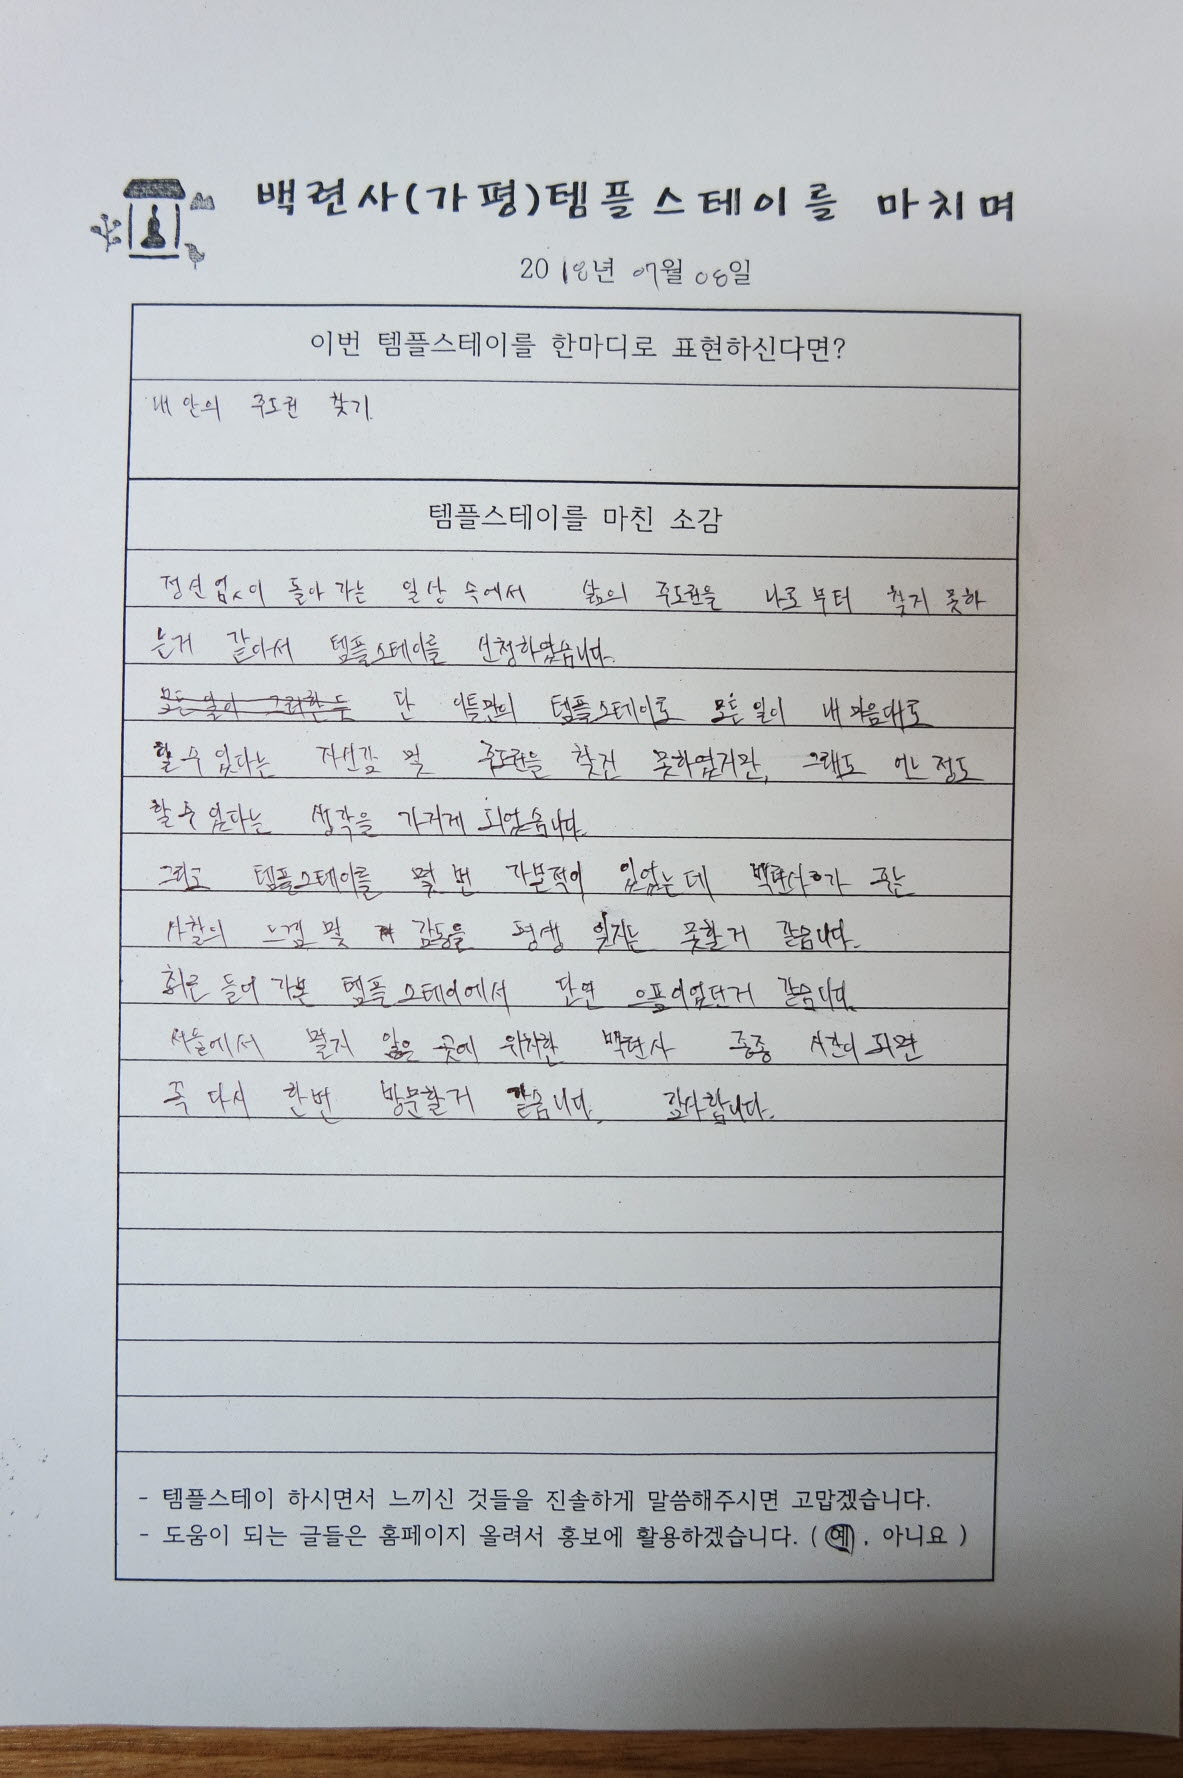 백련사(가평)템플스테이를 마치며
2018년 07월 08일
이번 템플스테이를 한마디로 표현하신다면?
내 안의 주도권 찾기.
템플스테이를 마친 소감
정신없이 돌아가는 일상 속에서 삶의 주도권을 나로부터 찾지 못하
는거 같아서 템플스테이를 신청하였습니다.
모든 일이 그러한 듯 단 이틀만의 템플스테이로 모든일이 내 마음대로
할 수 있다는 자신감 및 주도권을 찾진 못하였지만, 그래도 어느정도
할 수 있다는 생각을 가지게 되었습니다.
그리고 템플스테이를 몇 번 가본적이 있었는데 백련사가 주는
사찰의 느낌 및 감동을 평생 잊지는 못할거 같습니다.
휘른 들어 가본 템플스테이에서 단연 으뜸이었던거 같습니다.
서울에서 멀지 않은 곳에 위치한 백련사 종종 시간이 되면
꼭 다시 한번 방문할거 같습니다. 감사합니다.
- 템플스테이 하시면서 느끼신 것들을 진솔하게 말씀해주시면 고맙겠습니다.
- 도움이 되는 글들은 홈페이지 올려서 홍보에 활용하겠습니다. ( 예 , 아니요 )